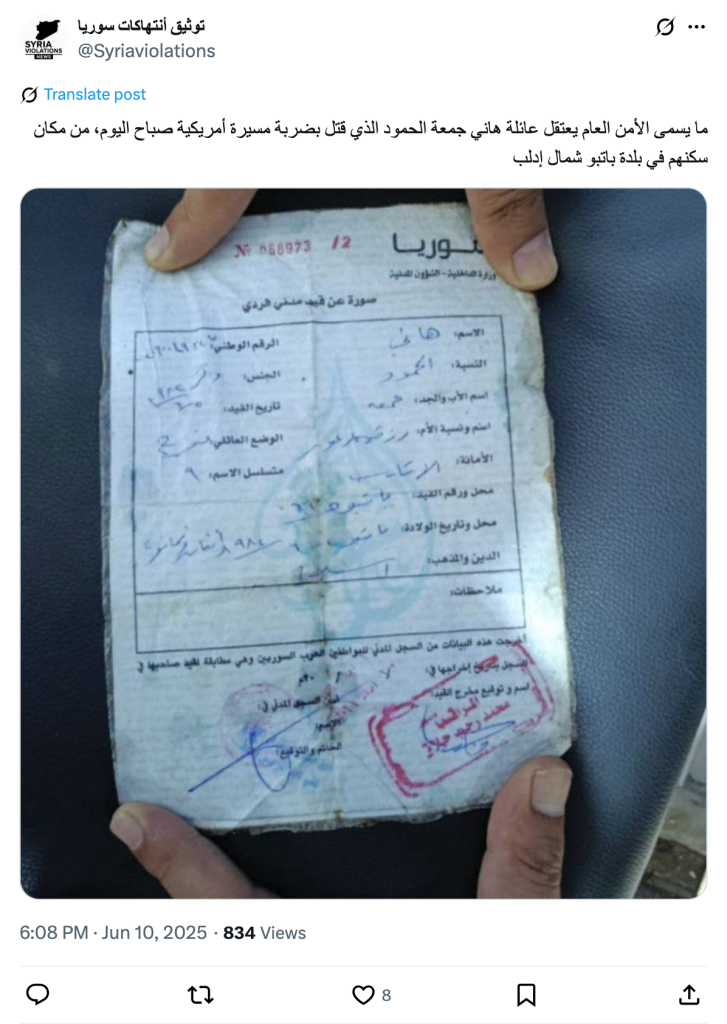 توثيق أنتهاكات سوريا
@Syriaviolations
SYRIA
VIOLATIONS
NEWS
Translate post
ما يسمى الأمن العام يعتقل عائلة هاني جمعة الحمود الذي قتل بضربة مسيرة أمريكية صباح اليوم، من مكان
سكنهم في بلدة باتبو شمال إدلب
سوريا
№ 068973 /2
وزارة الداخلية - الشؤون المدنية
صورة عن قيد مدني فردي
الاسم: هاني
الرقم الوطني:
النسبة: الحمود
الجنس: ذكر
اسم الأب والجد: جمعه
تاريخ القيد:
اسم ونسبة الأم:
الوضع العائلي:
الأمانة: الاتارب
متسلسل الاسم: ٩
محل ورقم القيد: باتبو
محل وتاريخ الولادة: باتبو
الدين والمذهب:
ملاحظات:
أخرجت هذه البيانات من السجل المدني للمواطنين العرب السوريين وهي مطابقة لقيد صاحبها في
السجل بتاريخ إخراجها في: / ٢٠م
اسم و توقيع مخرج القيد:
أمين السجل المدني في:
الاسم:
الخاتم والتوقيع:
6:08 PM · Jun 10, 2025 · 834 Views
8